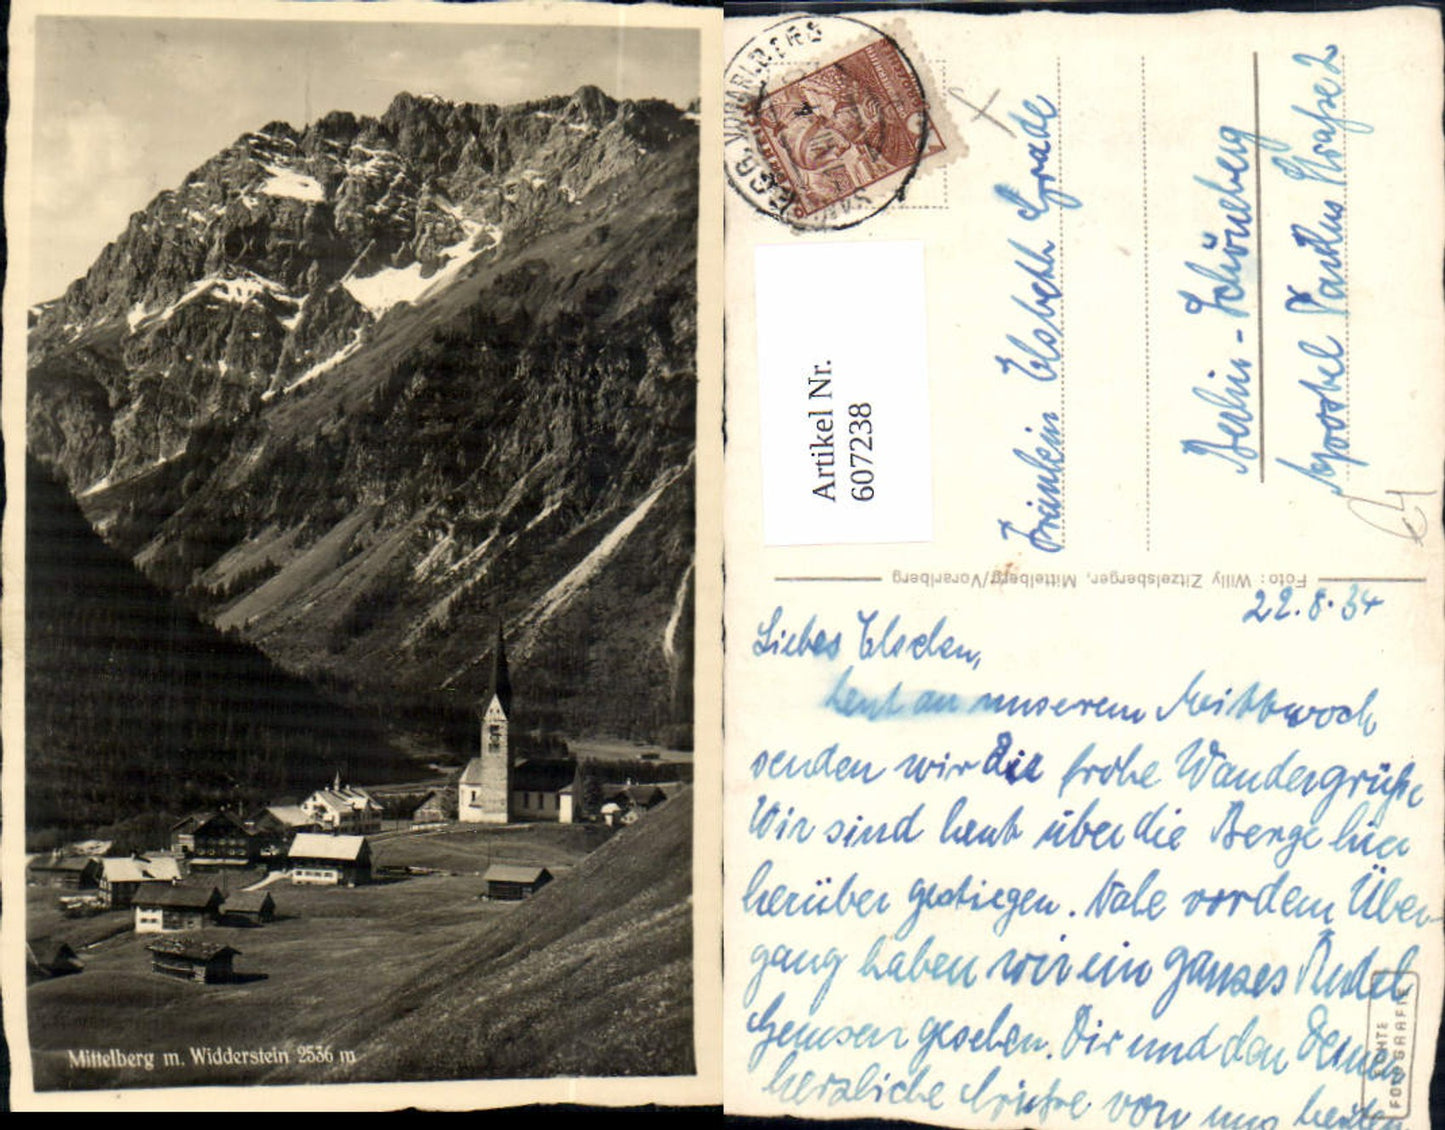 Mittelberg m. Widderstein 2536 m
EGG, VORARLBERG
Artikel Nr.
607238
Fräulein Elsbeth Grade
Berlin - Schöneberg
Apostel Paulus Straße 2
Foto: Willy Zitzelsberger, Mittelberg/Vorarlberg
22.8.34
Liebes Elschen,
heut an unserem Mittwoch
senden wir Dir frohe Wandergrüße
Wir sind heut über die Berge hier
herüber gestiegen. Nahe vor dem Über-
gang haben wir ein ganzes Rudel
Gemsen gesehen. Dir und den Deinen
herzliche Grüße von uns beiden
ECHTE
FOTOGRAFIE